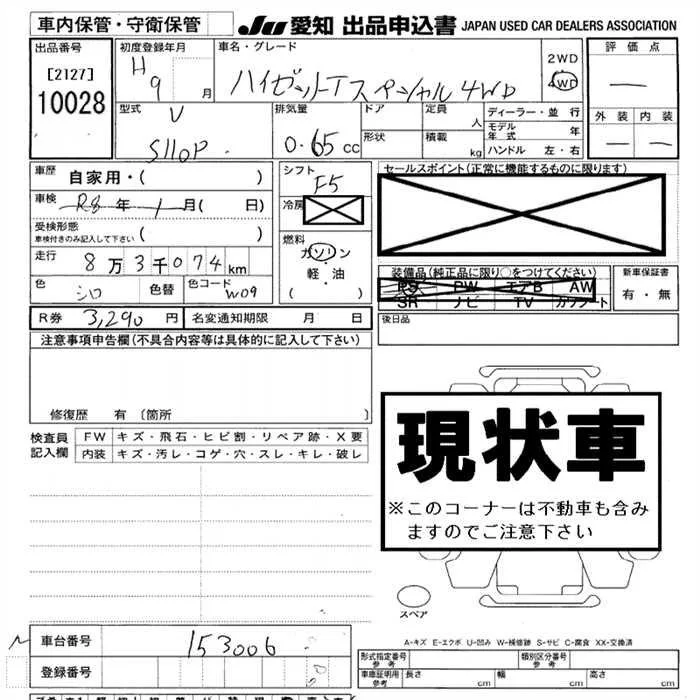 車内保管・守衛保管
JU 愛知 出品申込書 JAPAN USED CAR DEALERS ASSOCIATION
出品番号 [2127] 10028
初度登録年月 H9 月
車名・グレード ハイゼットTスペシャル4WD
2WD
4WD
評価点 —
外装 — 内装 —
型式 V S110P
排気量 0.65 cc
ドア
形状
定員 人
積載 kg
ディーラー・並行
モデル年式 年
ハンドル 左・右
車歴 自家用・( )
車検 R8年1月( 日)
受検形態
車検付きのみ記入して下さい ( )
走行 8万3千074km
色 シロ 色替 色コード W09
シフト F5
冷房
燃料 ガソリン
軽・油
( )
セールスポイント(正常に機能するものに限ります)
装備品(純正品に限り○をつけてください)
PS PW エアB AW
SR ナビ TV カワシート
新車保証書
有・無
R券 3,290円 名変通知期限 月 日
後日品
注意事項申告欄(不具合内容等は具体的に記入して下さい)
修復歴 有〔箇所 〕
検査員記入欄
FW キズ・飛石・ヒビ割・リペア跡・X要
内装 キズ・汚レ・コゲ・穴・スレ・キレ・破レ
現状車
※このコーナーは不動車も含み
ますのでご注意下さい
スペア
A-キズ E-エクボ U-凹み W-補修跡 S-サビ C-腐食 XX-交換済
車台番号 153006
登録番号
形式指定番号 参考
類別区分番号 参考
車庫証明用 参考 長さ cm 幅 cm 高さ cm